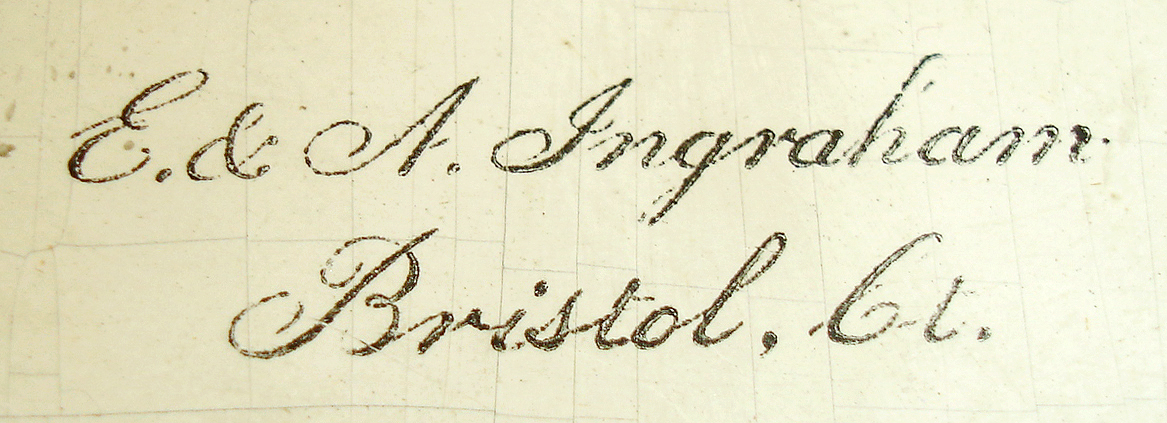 E. & A. Ingraham.
Bristol, Ct.